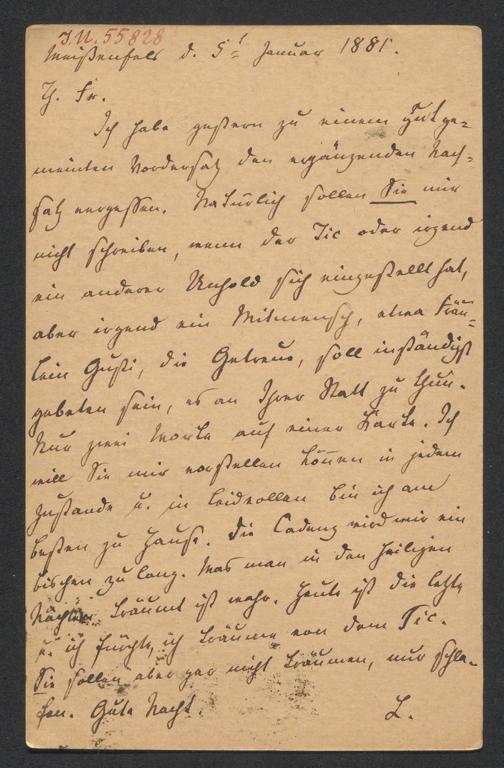 I.N. 55828
Weißenfels d. 5t Januar 1881.
Th. Fr.
Ich habe gestern zu einem gut ge-
meinten Vordersatz den ergänzenden Nach-
satz vergessen. Natürlich sollen Sie mir
nicht schreiben, wenn der Tic oder irgend
ein anderer Unhold sich eingestellt hat,
aber irgend ein Mitmensch, etwa Fräu-
lein Gusti, die Getreue, soll inständigst
gebeten sein, es an Ihrer Statt zu thun.
Nur zwei Worte auf einer Karte. Ich
will Sie mir vorstellen können in jedem
Zustande u. in leidvollen bin ich am
besten zu Hause. Die Cadenz wird mir ein
bischen zu lang. Was man in den heiligen
Nächten träumt ist wahr. Heute ist die letzte
u. ich fürchte, ich träume von dem Tic.
Sie sollen aber gar nicht träumen, nur schla-
fen. Gute Nacht. L.